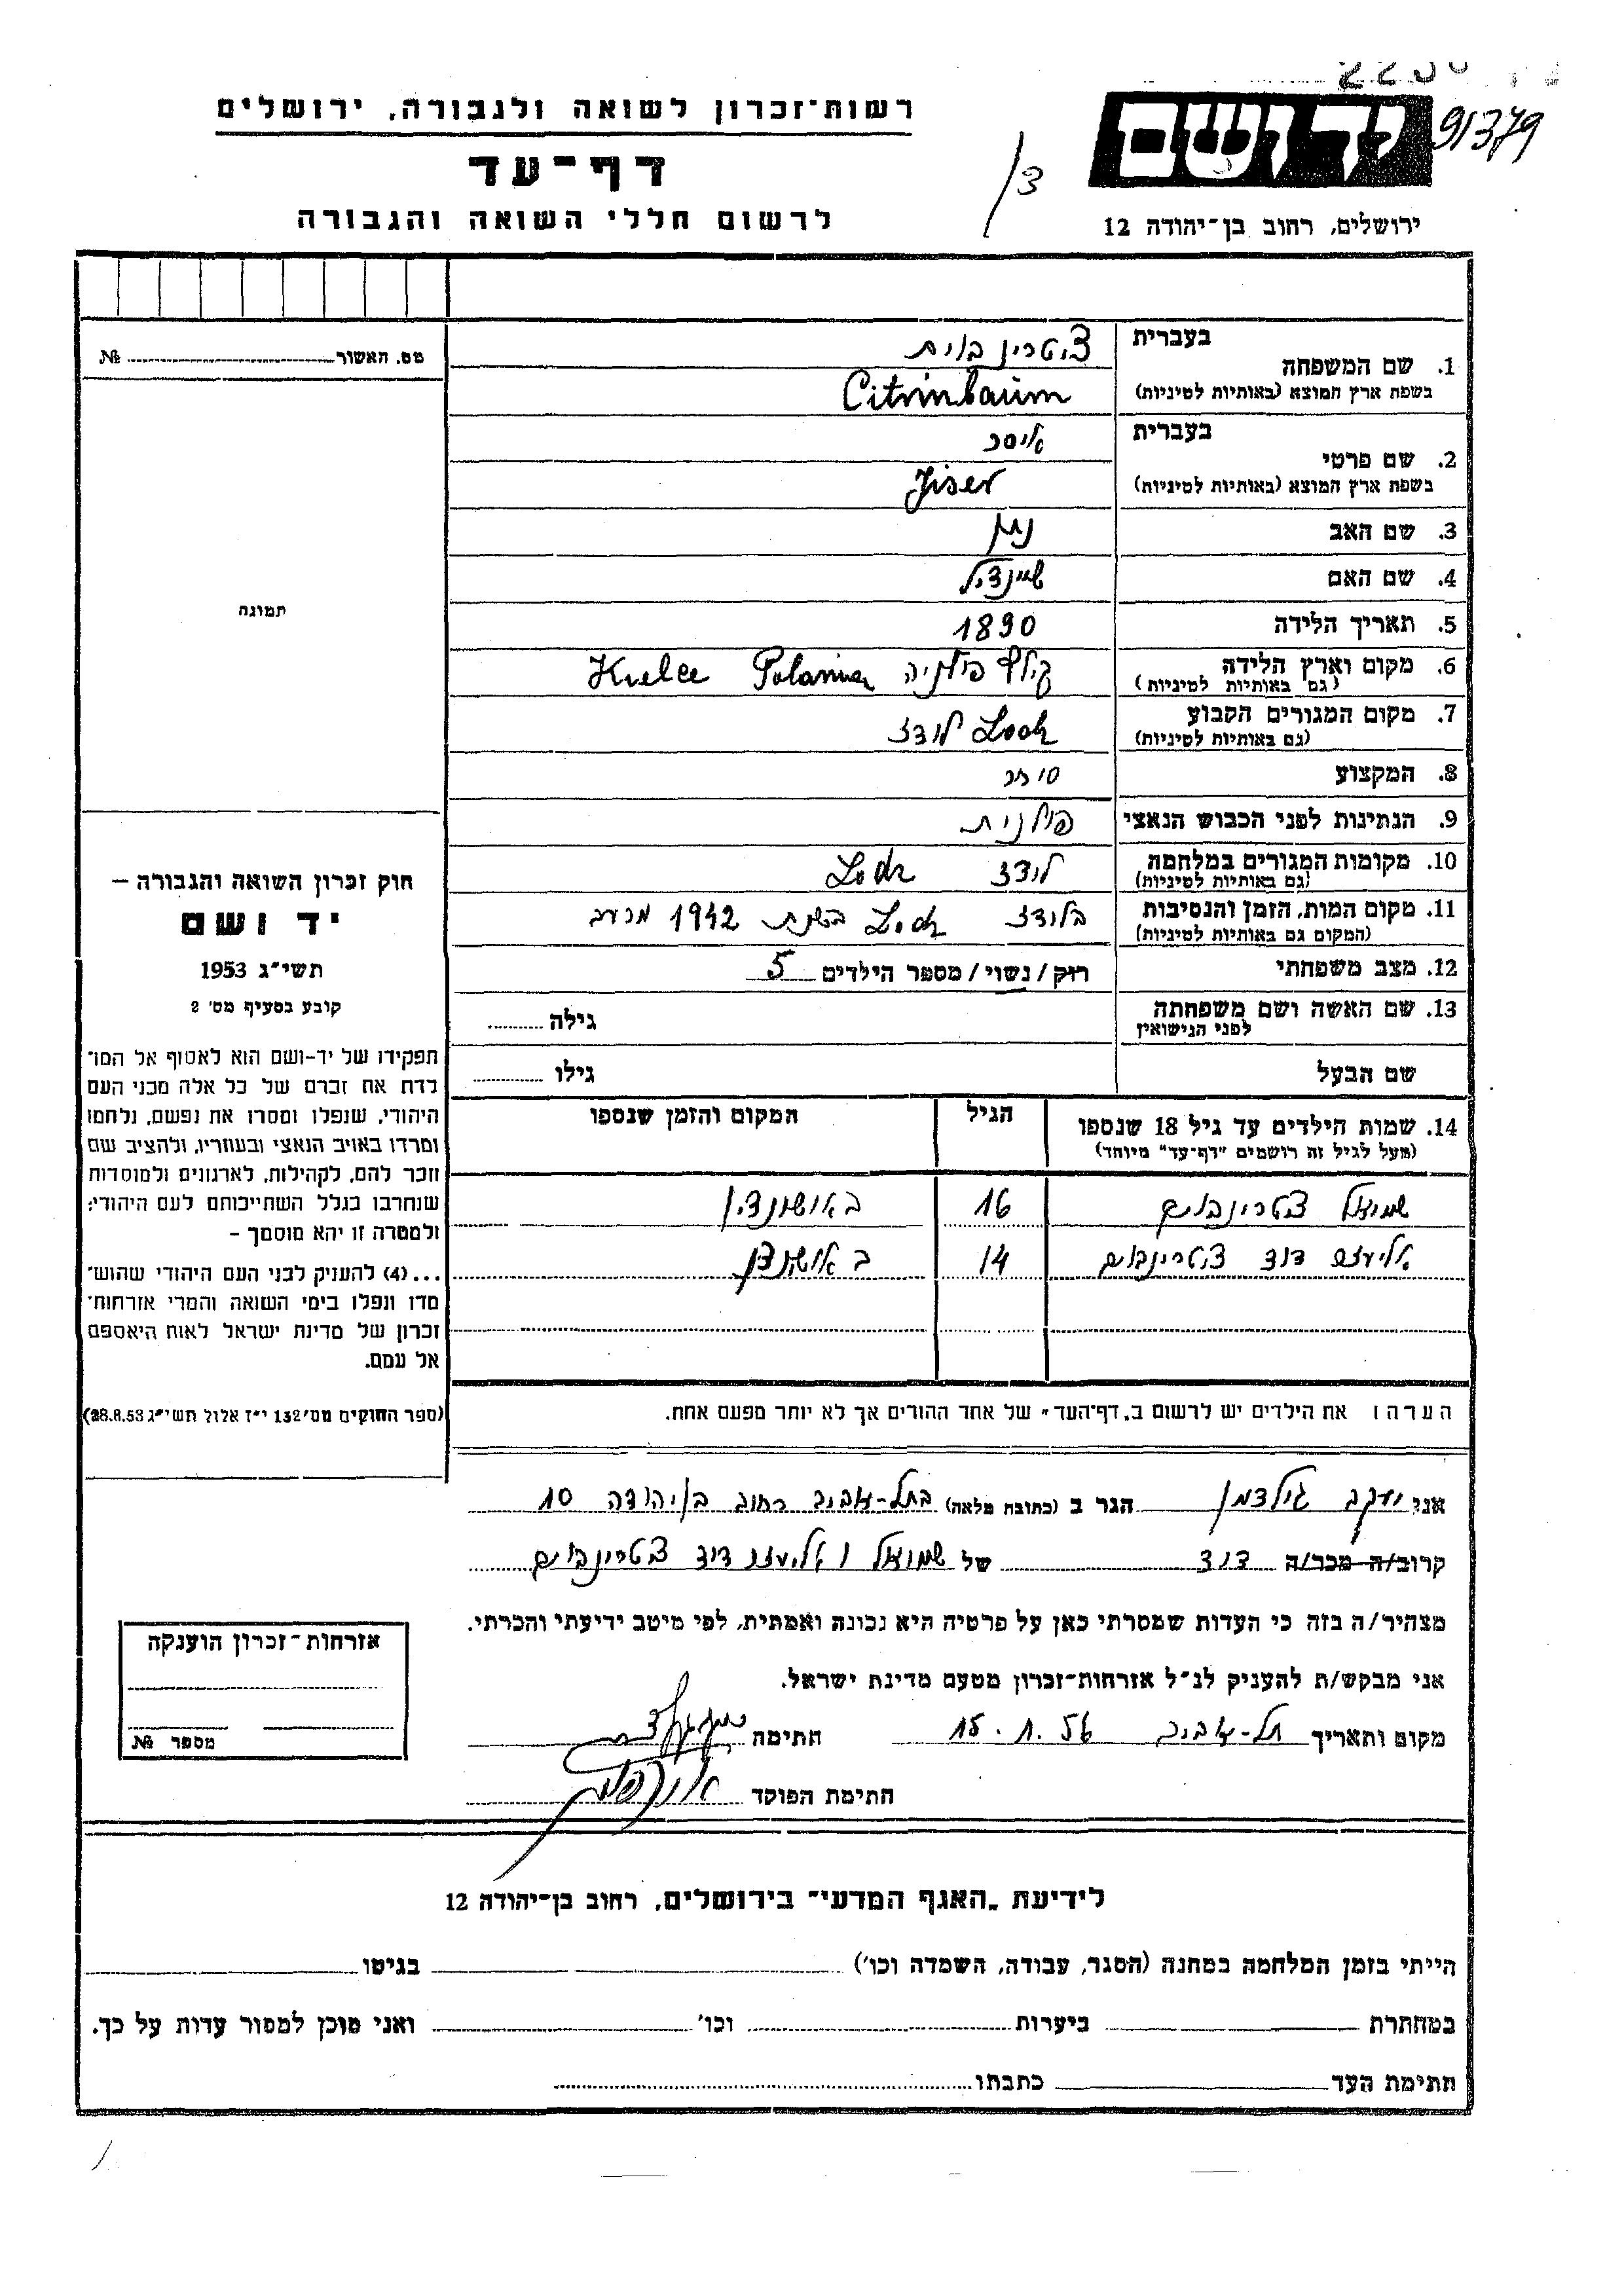 רשות־זכרון לשואה ולגבורה, ירושלים
דף־עד
לרשום חללי השואה והגבורה
ידושם
91379
/3
ירושלים, רחוב בן־יהודה 12
מס. האשור № 
תמונה
בעברית
1. שם המשפחה
בשפת ארץ המוצא (באותיות לטיניות)
Citrinbaum
בעברית איסר
2. שם פרטי
בשפת ארץ המוצא (באותיות לטיניות) Jiser
3. שם האב נתן
4. שם האם שיינדיל
5. תאריך הלידה 1890
6. מקום וארץ הלידה Kielce Polania פולניה
(גם באותיות לטיניות)
7. מקום המגורים הקבוע Lodz לודז
(גם באותיות לטיניות)
8. המקצוע סוחר
9. הנתינות לפני הכבוש הנאצי פולנית
10. מקומות המגורים במלחמה לודז Lodz
(גם באותיות לטיניות)
11. מקום המות, הזמן והנסיבות בלודז Lodz בשנת 1942 מרעב
(המקום גם באותיות לטיניות)
12. מצב משפחתי רוק/נשוי/מספר הילדים 5
13. שם האשה ושם משפחתה גילה
לפני הנישואין
שם הבעל גילו
14. שמות הילדים עד גיל 18 שנספו הגיל המקום והזמן שנספו
(מעל לגיל זה רושמים "דף־עד" מיוחד)
שמואל צטרינבוים 16
אליעזר דוד צטרינבוים 14
הערה: את הילדים יש לרשום ב„דף־העד" של אחד ההורים אך לא יותר מפעם אחת.
חוק זכרון השואה והגבורה –
יד ושם
תשי"ג 1953
קובע בסעיף מס' 2
תפקידו של יד־ושם הוא לאסוף אל המו־
לדת את זכרם של כל אלה מבני העם
היהודי, שנפלו ומסרו את נפשם, נלחמו
ומרדו באויב הנאצי ובעוזריו, ולהציב שם
וזכר להם, לקהילות, לארגונים ולמוסדות
שנחרבו בגלל השתייכותם לעם היהודי;
ולמטרה זו יהא מוסמך –
...(4) להעניק לבני העם היהודי שהוש־
מדו ונפלו בימי השואה והמרי אזרחות־
זכרון של מדינת ישראל לאות היאספם
אל עמם.
(ספר החוקים מס' 132 י"ז אלול תשי"ג 28.8.53)
אני יעקב גילדמן הגר ב (כתובת מלאה) בתל-אביב רחוב בן יהודה 10
קרוב/ה מכר/ה דוד של שמואל ואליעזר דוד צטרינבוים
מצהיר/ה בזה כי העדות שמסרתי כאן על פרטיה היא נכונה ואמתית, לפי מיטב ידיעתי והכרתי.
אני מבקש/ת להעניק לנ"ל אזרחות־זכרון מטעם מדינת ישראל.
מקום ותאריך תל-אביב 15.1.56 חתימה
חתימת הפוקד
אזרחות־זכרון הוענקה
מספר №
לידיעת „האגף המדעי" בירושלים, רחוב בן־יהודה 12
הייתי בזמן המלחמה במחנה (הסגר, עבודה, השמדה וכו') בגיטו
במחתרת ביערות וכו' ואני מוכן למסור עדות על כך.
חתימת העד כתבתו